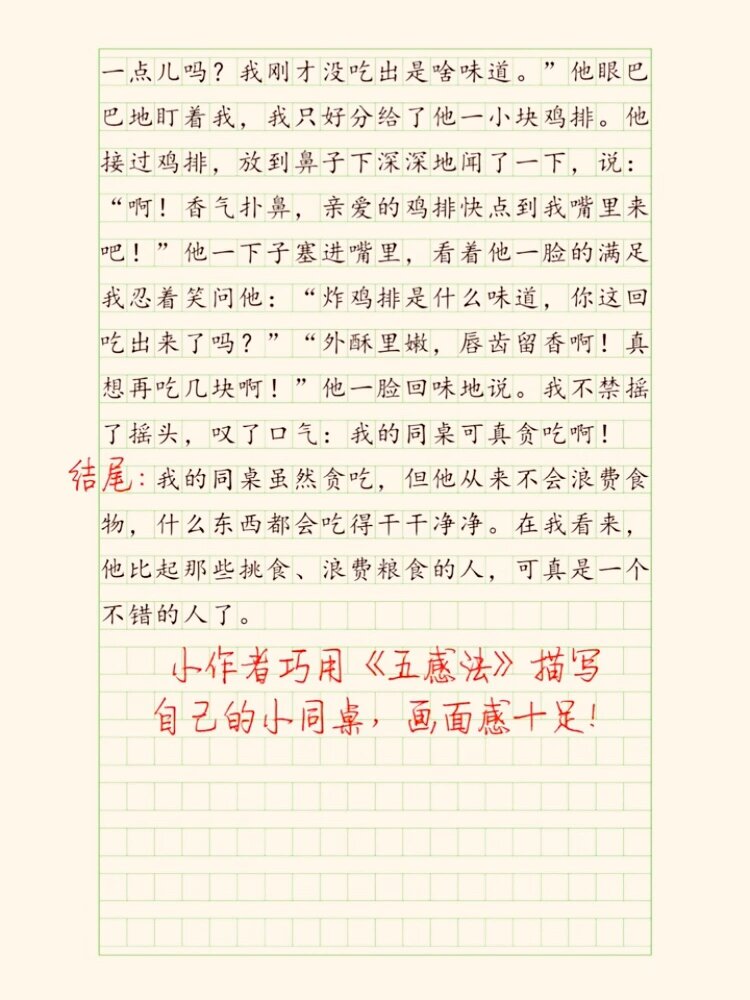 一点儿吗？我刚才没吃出是啥味道。”他眼巴
巴地盯着我，我只好分给了他一小块鸡排。他
接过鸡排，放到鼻子下深深地闻了一下，说：
“啊！香气扑鼻，亲爱的鸡排快点到我嘴里来
吧！”他一下子塞进嘴里，看着他一脸的满足
我忍着笑问他：“炸鸡排是什么味道，你这回
吃出来了吗？”“外酥里嫩，唇齿留香啊！真
想再吃几块啊！”他一脸回味地说。我不禁摇
了摇头，叹了口气：我的同桌可真贪吃啊！
结尾：我的同桌虽然贪吃，但他从来不会浪费食
物，什么东西都会吃得干干净净。在我看来，
他比起那些挑食、浪费粮食的人，可真是一个
不错的人了。
小作者巧用《五感法》描写
自己的小同桌，画面感十足！